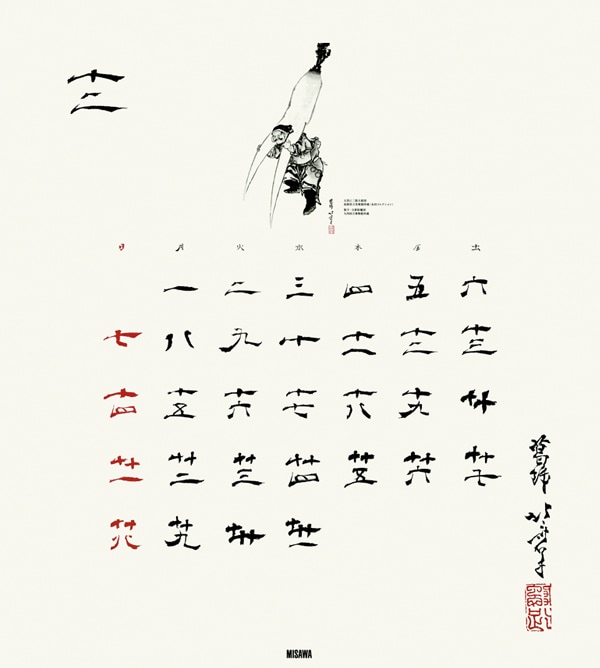 十二
日 月 火 水 木 金 土
一 二 三 四 五 六
七 八 九 十 十一 十二 十三
十四 十五 十六 十七 十八 十九 廿
廿一 廿二 廿三 廿四 廿五 廿六 廿七
廿八 廿九 卅 卅一
MISAWA